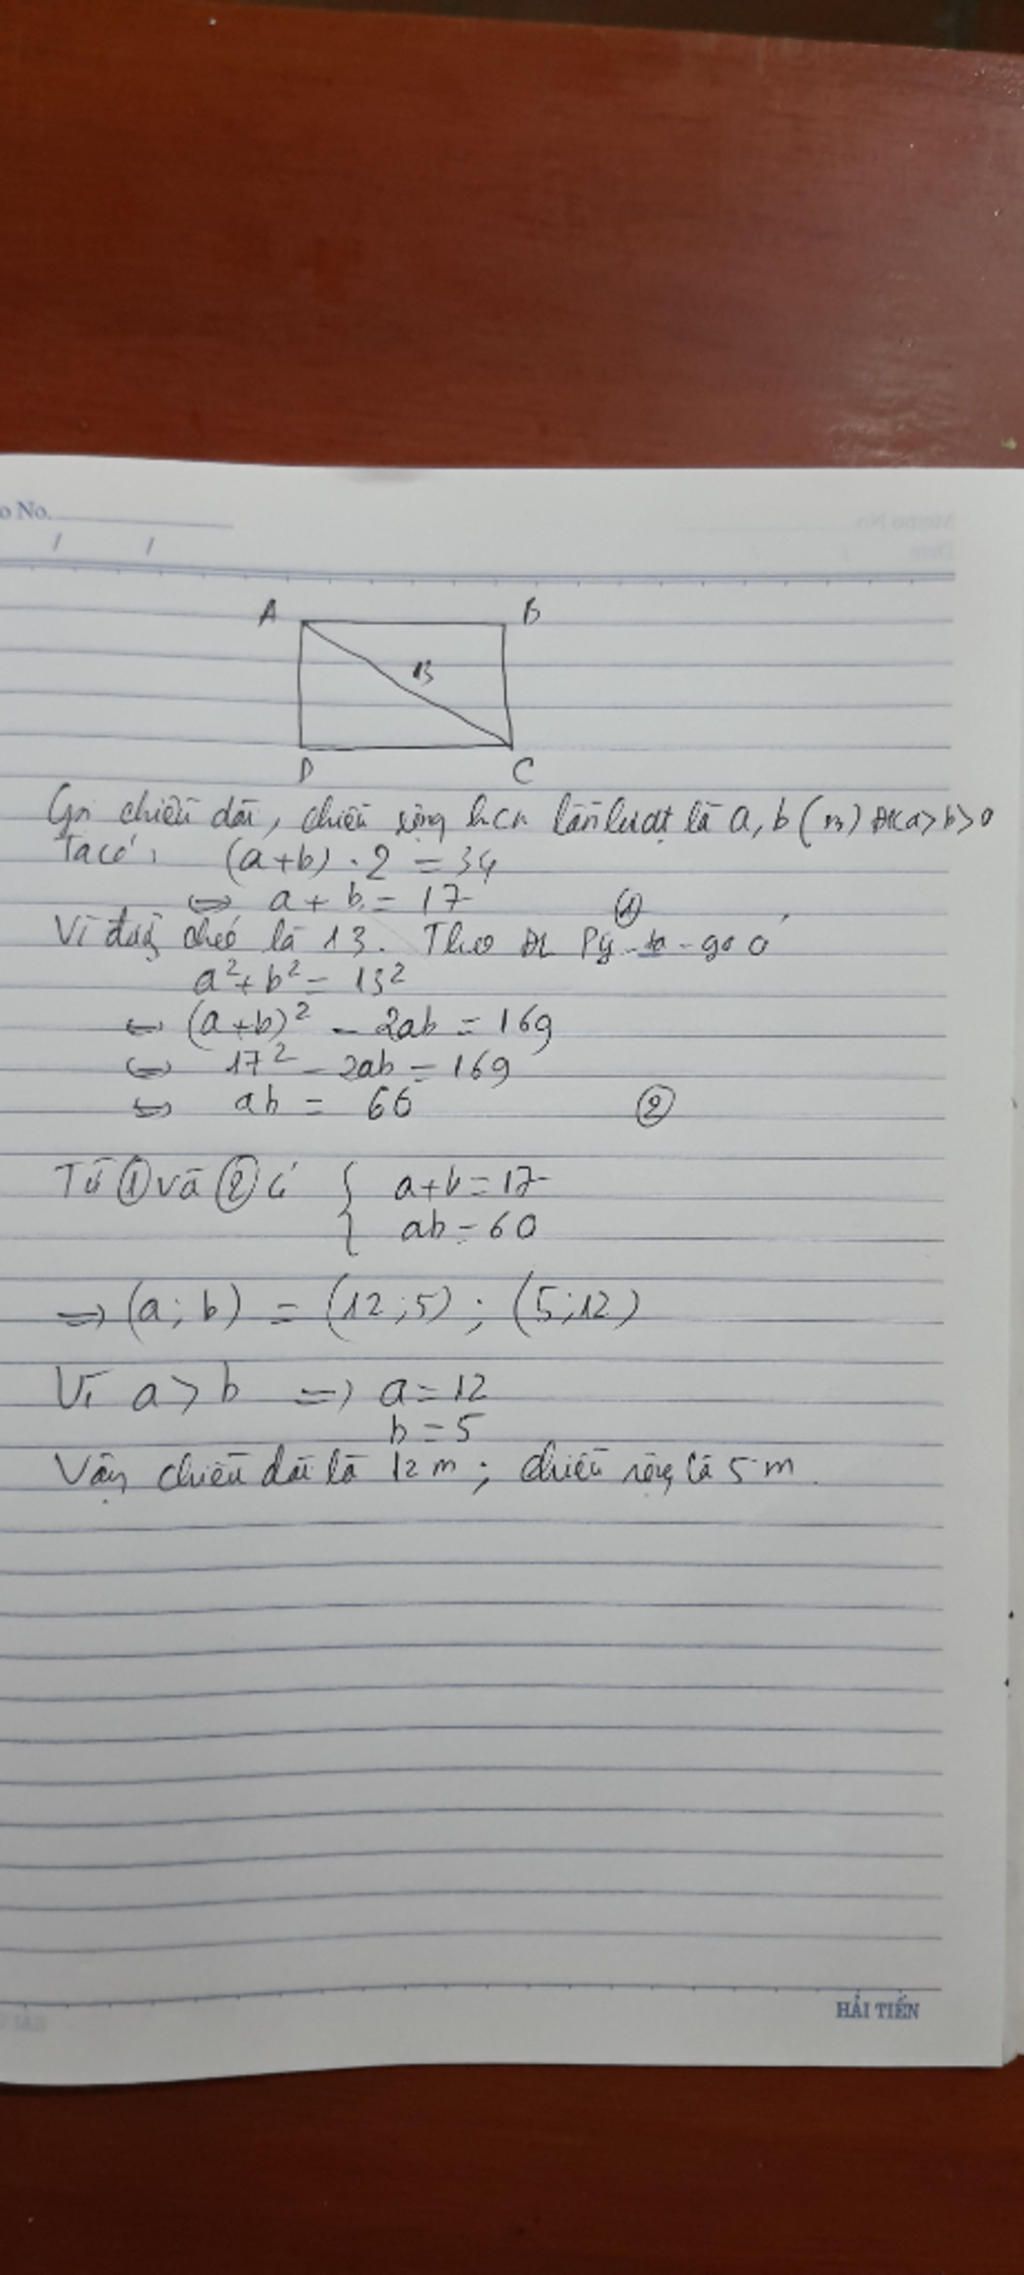 o No.
/ /
A B
13
D C
Gọi chiều dài, chiều rộng hcn lần lượt là a, b (m) ĐK a>b>0
Ta có: (a+b).2 = 34
⇔ a + b = 17 ①
Vì đường chéo là 13. Theo ĐL Py-ta-go có
a² + b² = 13²
⇔ (a+b)² - 2ab = 169
⇔ 17² - 2ab = 169
⇔ ab = 60 ②
Từ ① và ② có { a+b = 17
ab = 60
⇒ (a; b) = (12;5) ; (5;12)
Vì a > b ⇒ a = 12
b = 5
Vậy chiều dài là 12 m ; chiều rộng là 5 m.
HẢI TIẾN